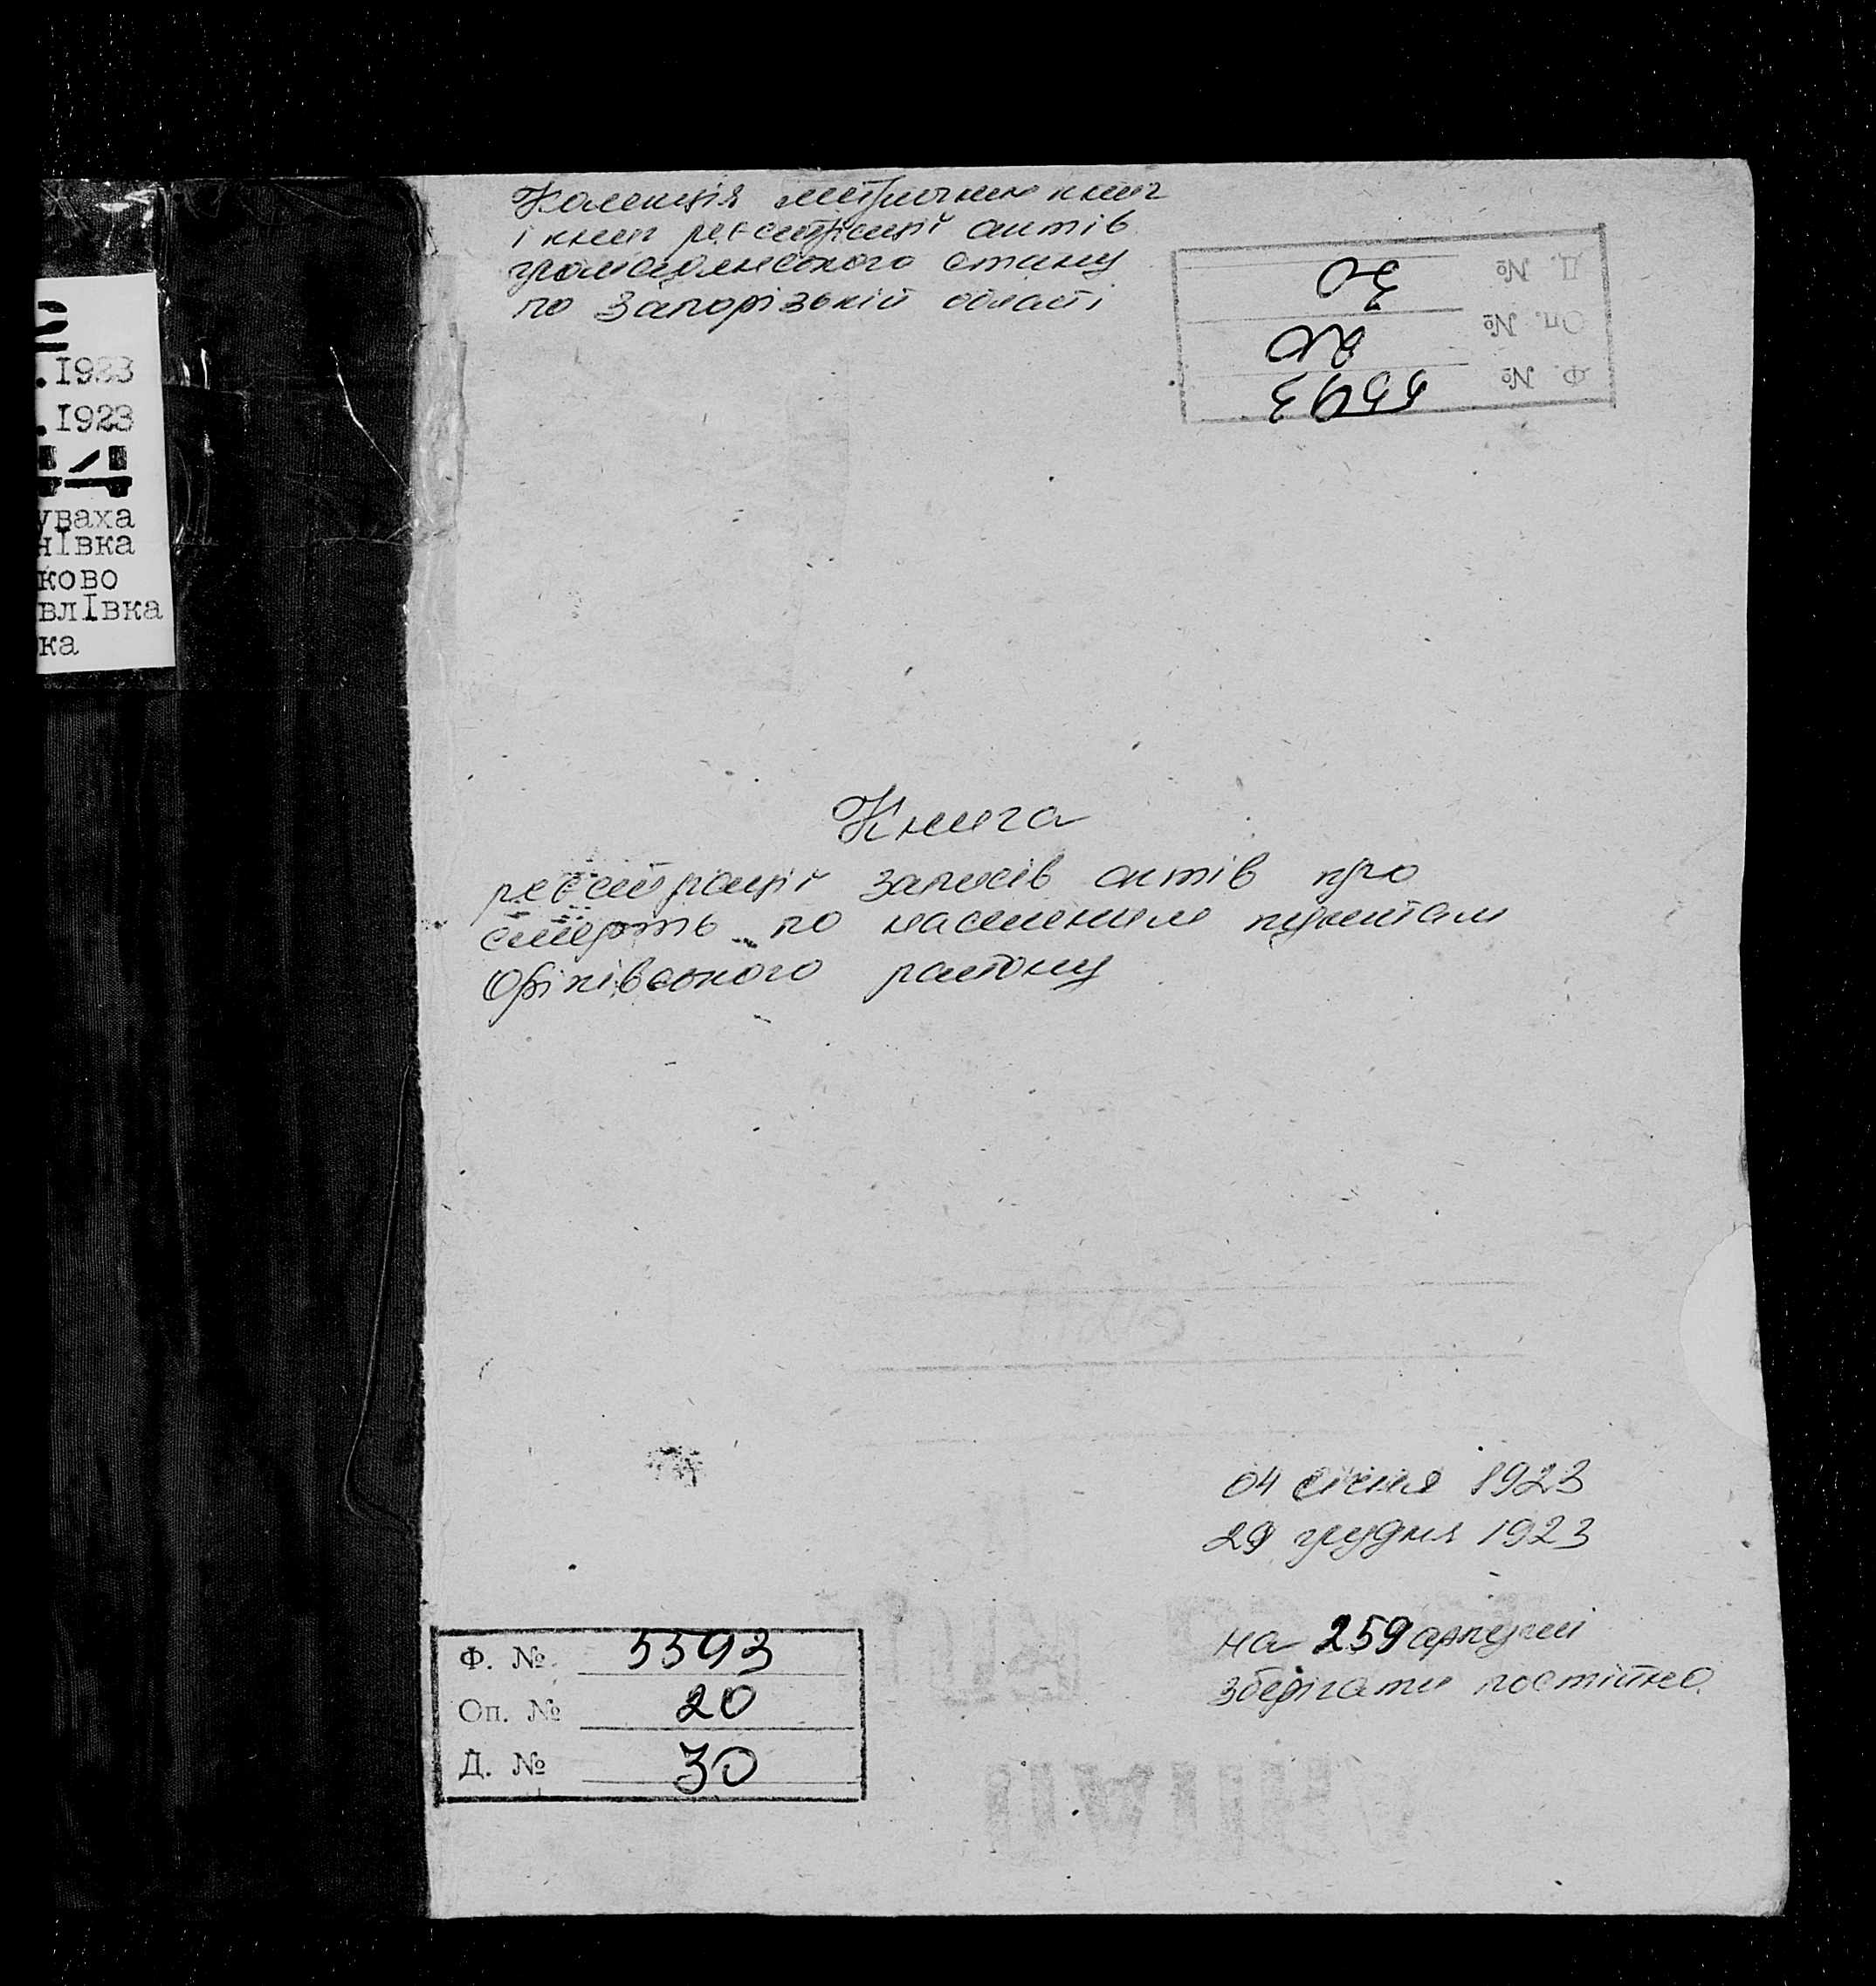 .1933
.1923
уваха
нІвка
ково
влІвка
ка
Колекція метричних книг
і книг реєстрації актів
громадянського стану
по Запорізькій області
Ф. № 5593
Оп. № 20
Д. № 30
Книга
реєстрації записів актів про
смерть по населеним пунктам
Оріхівського району
04 січня 1923
29 грудня 1923
на 259 аркушi
зберігати постійно
Ф. № 5593
Оп. № 20
Д. № 30